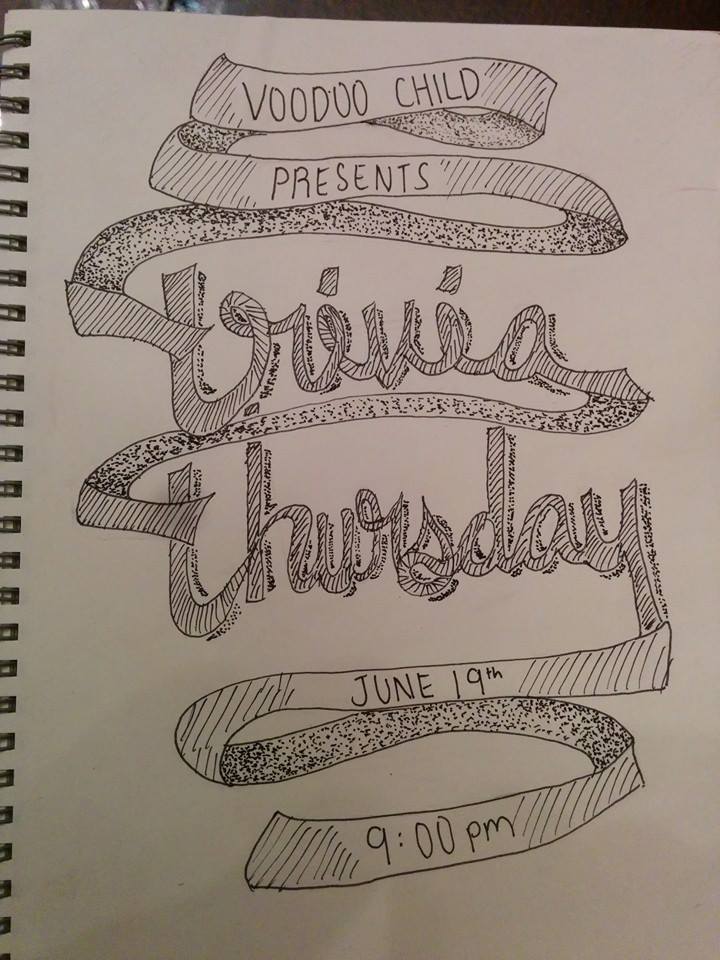 VOODOO CHILD
PRESENTS
trivia
thursday
JUNE 19th
9:00 pm